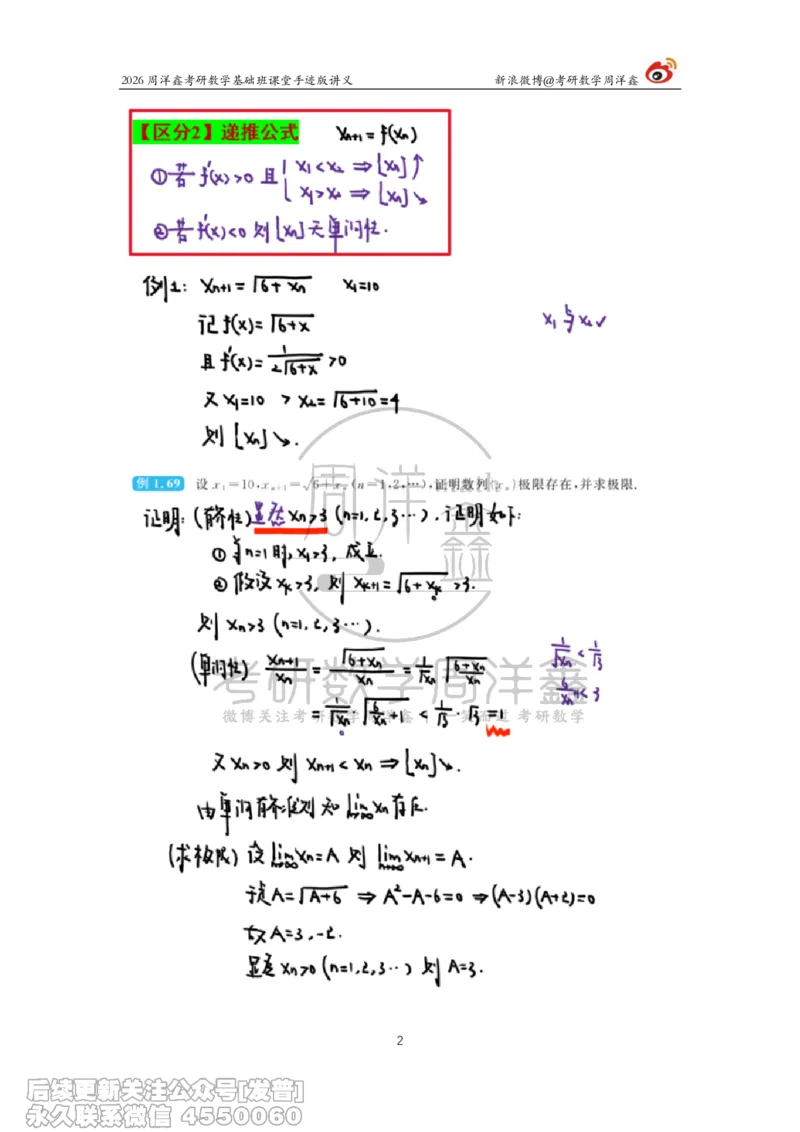 2026周洋鑫考研数学基础班课堂手迹版讲义 新浪微博@考研数学周洋鑫
【区分2】递推公式 Xn+1 = f(Xn)
①若 f'(x)>0 且 { X1<X2 ⇒ {Xn}↑
X1>X2 ⇒ {Xn}↘
②若 f'(x)<0 则{Xn}无单调性.
例1: Xn+1 = √(6+Xn) X1=10
记 f(x) = √(6+x) X1与X2✓
且 f'(x) = 1/(2√(6+x)) >0
又 X1=10 > X2 = √(6+10) = 4
则{Xn}↘.
例 1.69 设 x1=10, xn+1=√(6+xn) (n=1,2,…),证明数列{xn}极限存在,并求极限.
证明: (有界性) 显然 Xn>3 (n=1,2,3…). 证明如下:
①当n=1时, X1>3, 成立.
②假设 Xk>3, 则 Xk+1 = √(6+Xk) >3.
则 Xn>3 (n=1,2,3…).
(单调性) Xn+1/Xn = √(6+Xn)/Xn = 1/√Xn √((6+Xn)/Xn) 1/√Xn < 1/√3
= 1/√Xn · √(6/Xn+1) < 1/√3 · √3 = 1 6/Xn < 3
又 Xn>0 则 Xn+1 < Xn ⇒ {Xn}↘.
由单调有界准则知 lim n→∞ Xn 存在.
(求极限) 设 lim n→∞ Xn = A 则 lim n→∞ Xn+1 = A.
于是 A = √(A+6) ⇒ A²-A-6=0 ⇒ (A-3)(A+2)=0
故 A=3, -2.
显然 Xn>0 (n=1,2,3…) 则 A=3.
周洋鑫
考研数学周洋鑫
2
后续更新关注公众号[发普]
永久联系微信 4550060